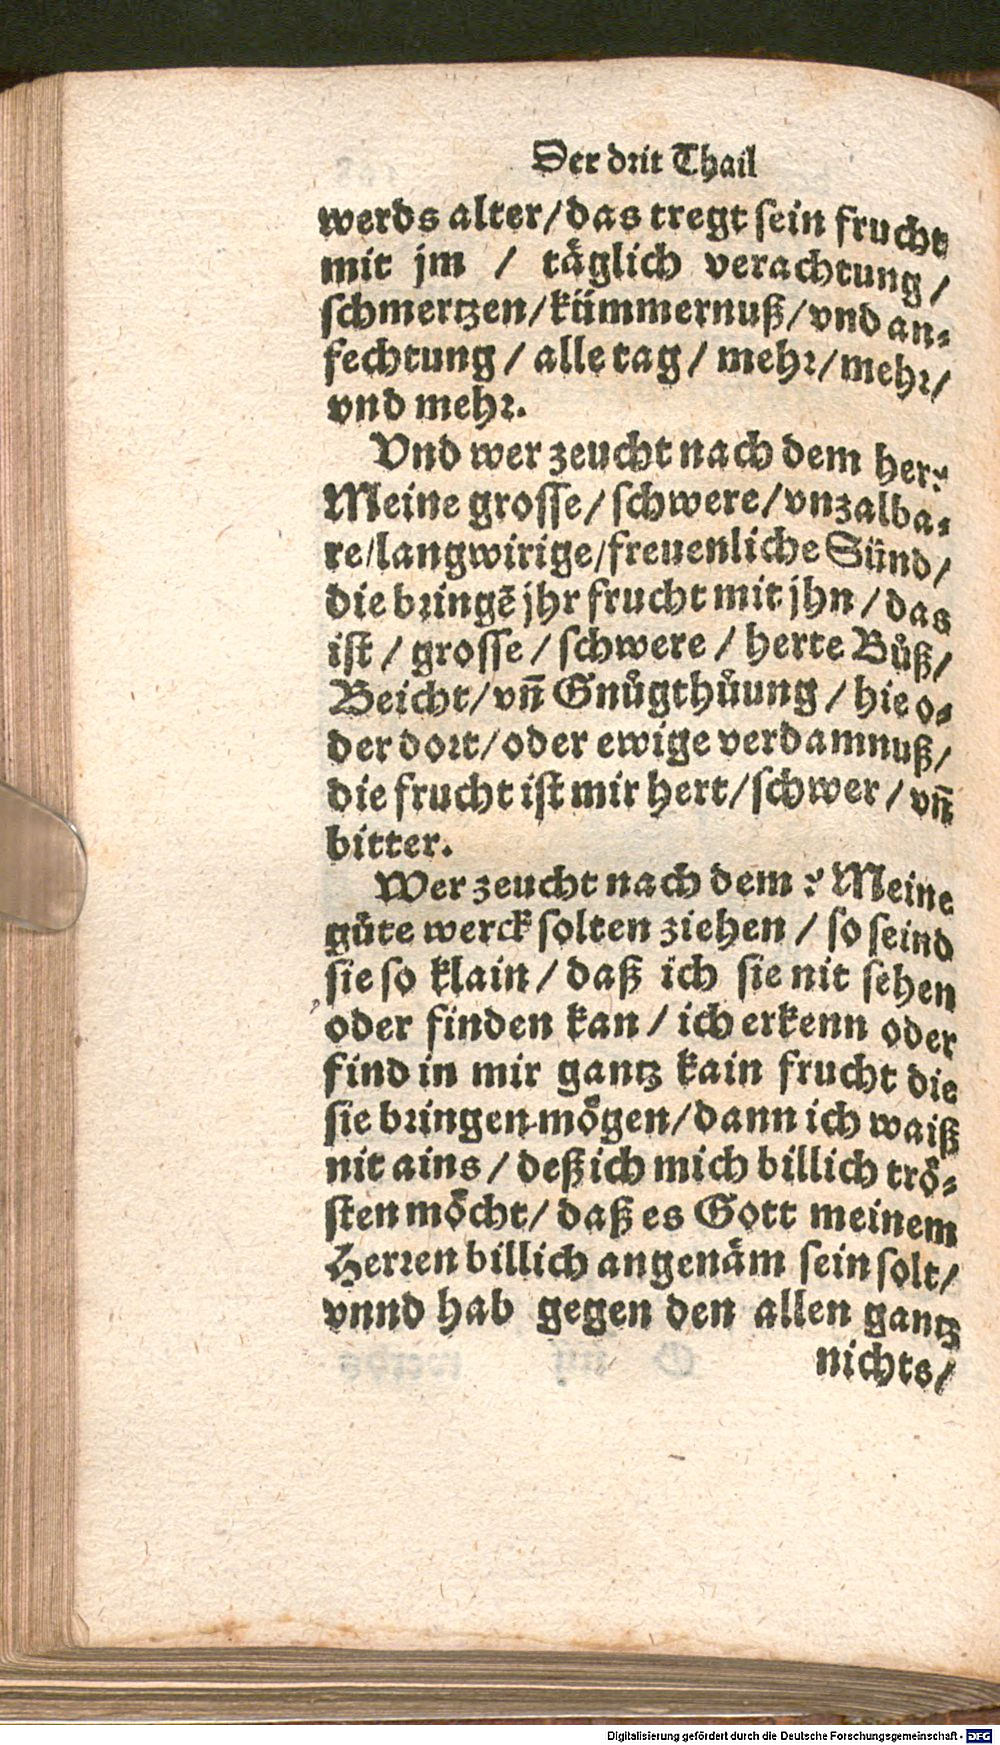 Der drit Thail
werds alter/das tregt sein frucht
mit jm / täglich verachtung /
schmertzen/kümmernuß/vnd an-
fechtung / alle tag / mehr/mehr/
vnd mehr.
Vnd wer zeucht nach dem her?
Meine grosse/ schwere/vnzalba-
re/langwirige/freuenliche Sünd/
die bringẽ jhr frucht mit jhn / das
ist / grosse / schwere / herte Bůß/
Beicht/vñ Gnůgthůung / hie o-
der dort/oder ewige verdamnuß/
die frucht ist mir hert/schwer / vñ
bitter.
Wer zeucht nach dem ? Meine
gůte werck solten ziehen / so seind
sie so klain / daß ich sie nit sehen
oder finden kan / ich erkenn oder
find in mir gantz kain frucht die
sie bringen mögen/dann ich waiß
nit ains / deß ich mich billich trö-
sten möcht/ daß es Gott meinem
Herren billich angenäm sein solt/
vnnd hab gegen den allen gantz
nichts/
Digitalisierung gefördert durch die Deutsche Forschungsgemeinschaft - DFG